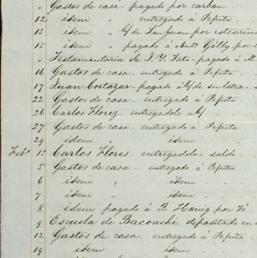 " Gastos de casa - pagado por carbon
12 idem " entregado a Pepita
15 idem " á/ de San Juan por
15 idem " pagado a Anto Gilly por
" Testamentaria de J. Y. - pagado a
16 Gastos de casa entregado a Pepita
17 Juan Cortazar - pagado á/
22 Gastos de casa entregado a Pepita
26 Carlos Florez entregadole
27 Gastos de casa entregado a Pepita
29 idem " idem
Feb° 1° Carlos Flores entregadole saldo
5 Gastos de casa entregado a Pepita
6 idem " idem
7 idem " idem
8 idem pagado á B. Honig por
9 Escuela de Bacoachi depositado en
12 Gastos de casa entregado a Pepita
19 idem " idem
" idem idem